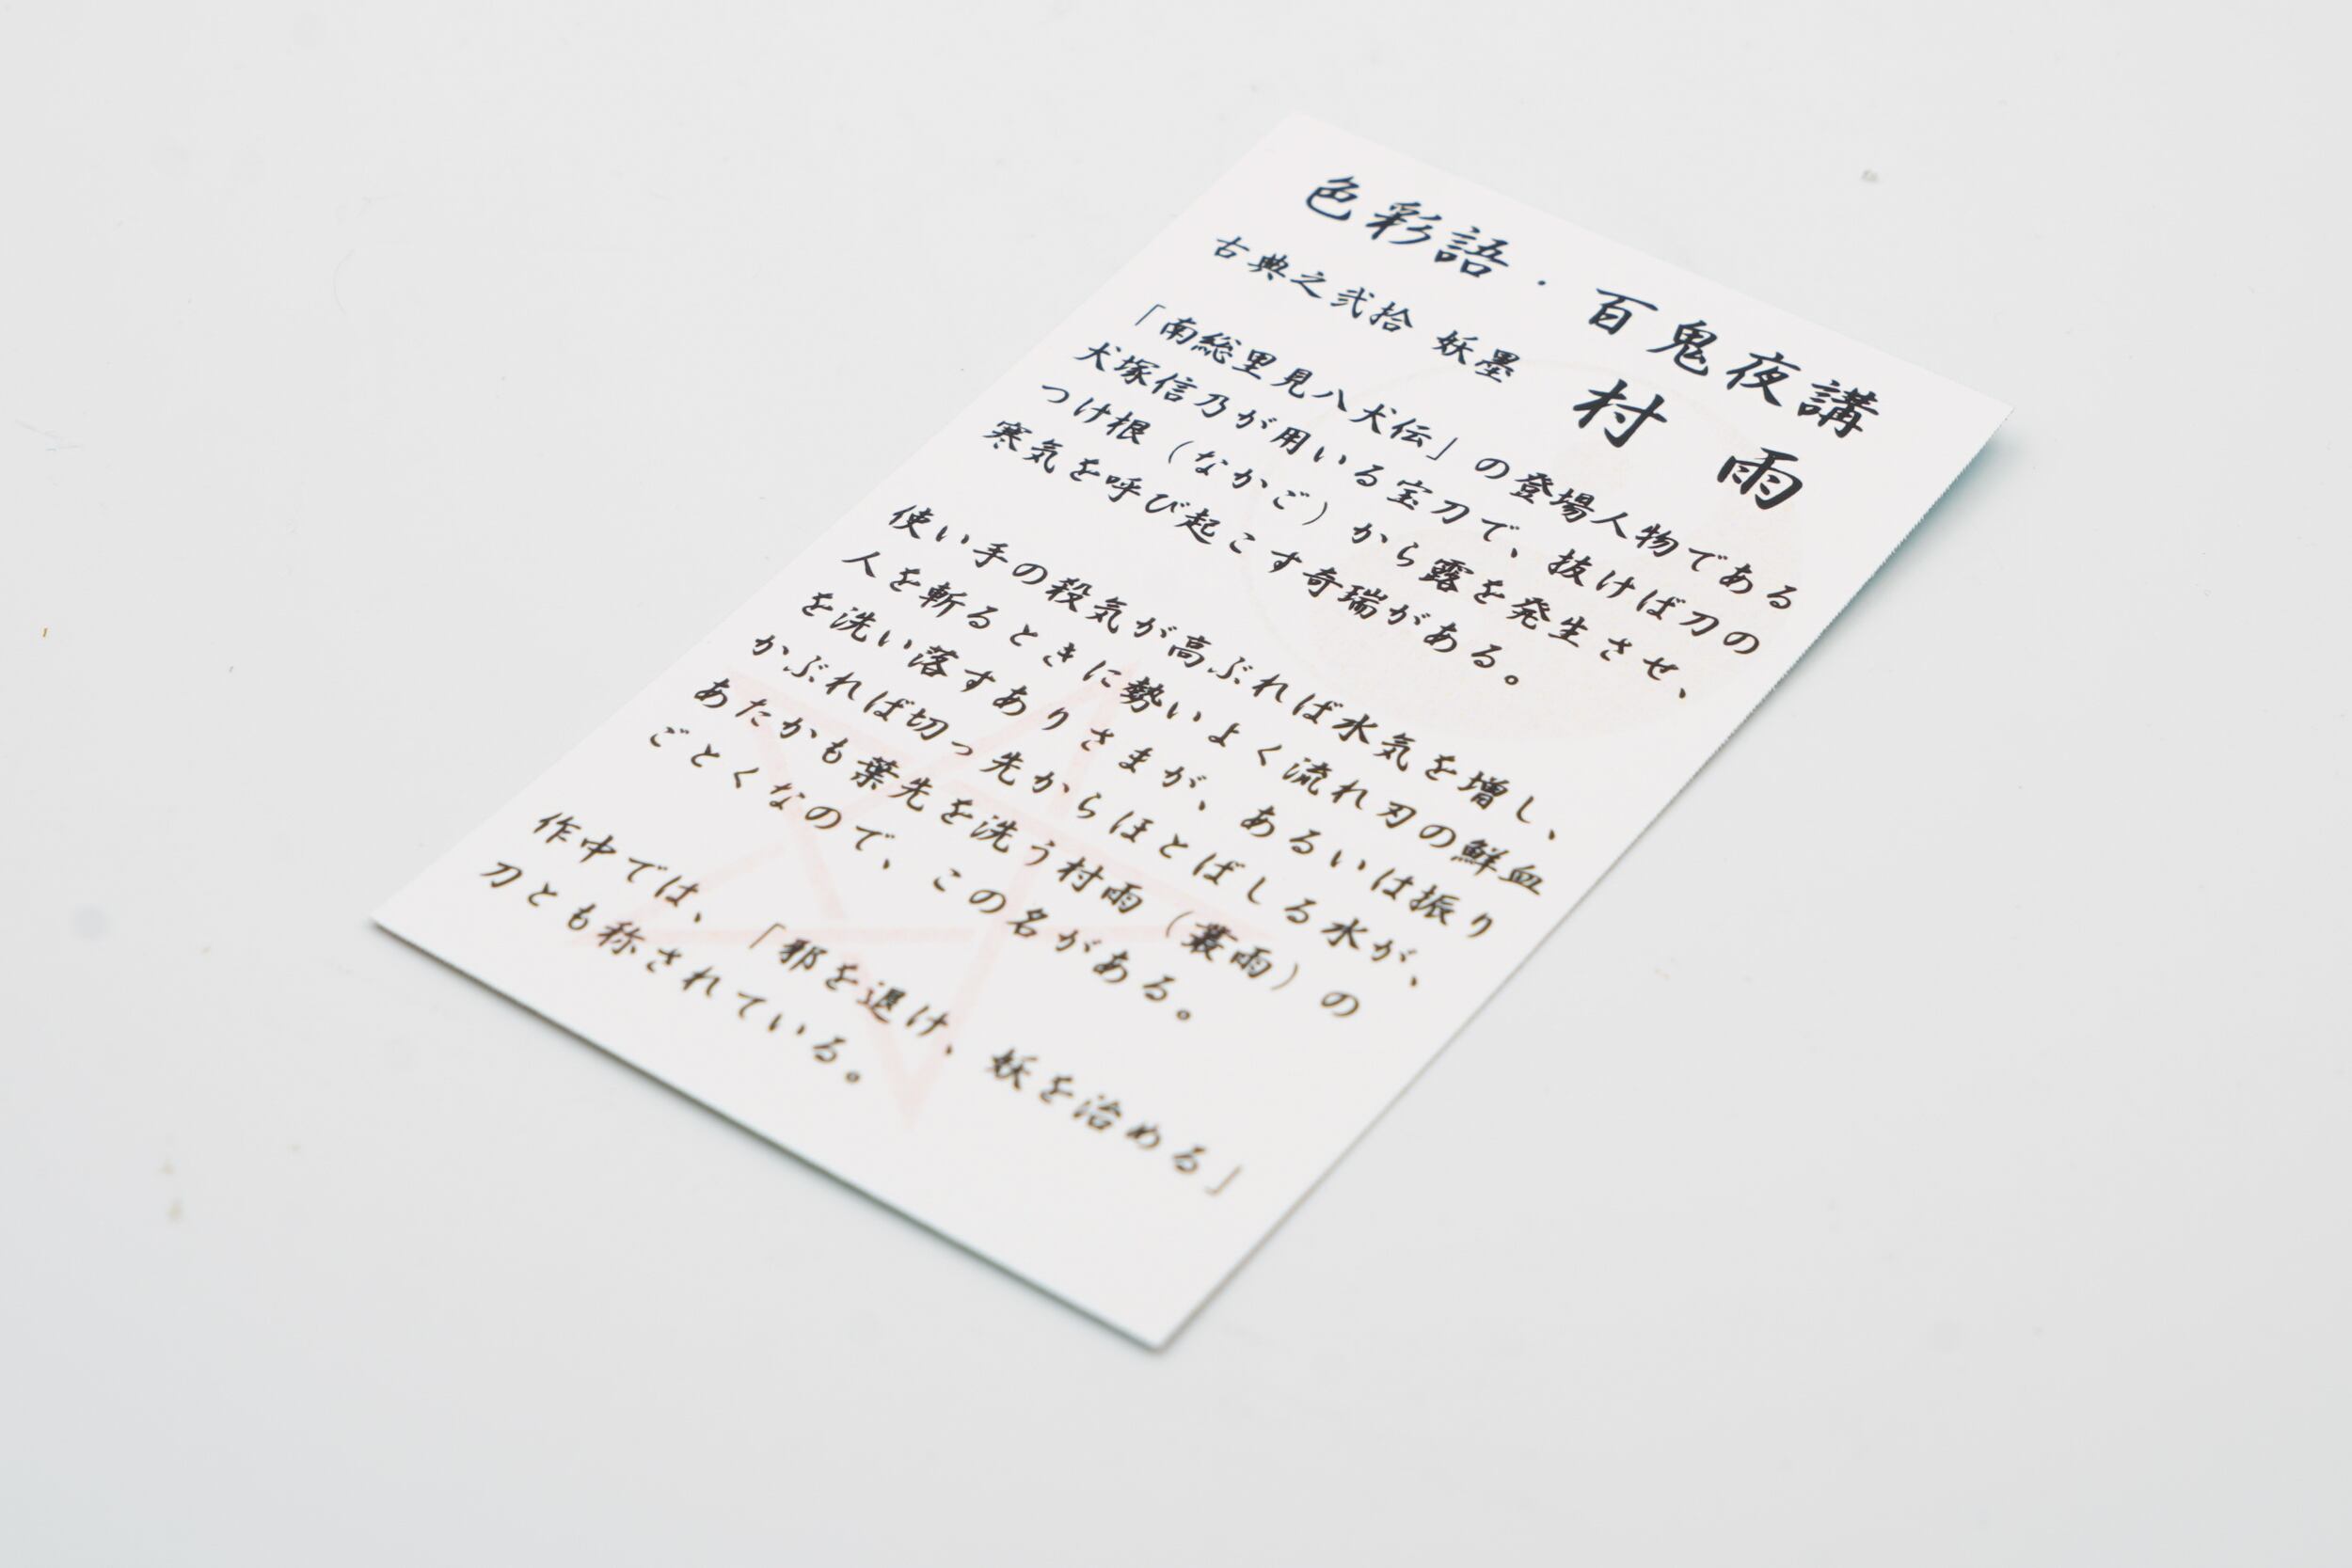 色彩語・百鬼夜講
古典之弐拾 妖墨 村 雨
「南総里見八犬伝」の登場人物である
犬塚信乃が用いる宝刀で、抜けば刀の
つけ根（なかご）から露を発生させ、
寒気を呼び起こす奇瑞がある。
使い手の殺気が高ぶれば水気を増し、
人を斬るときに勢いよく流れ刃の鮮血
を洗い落すありさまが、あるいは振り
かぶれば切っ先からほとばしる水が、
あたかも葉先を洗う村雨（叢雨）の
ごとくなので、この名がある。
作中では、「邪を退け、妖を治める」
刀とも称されている。